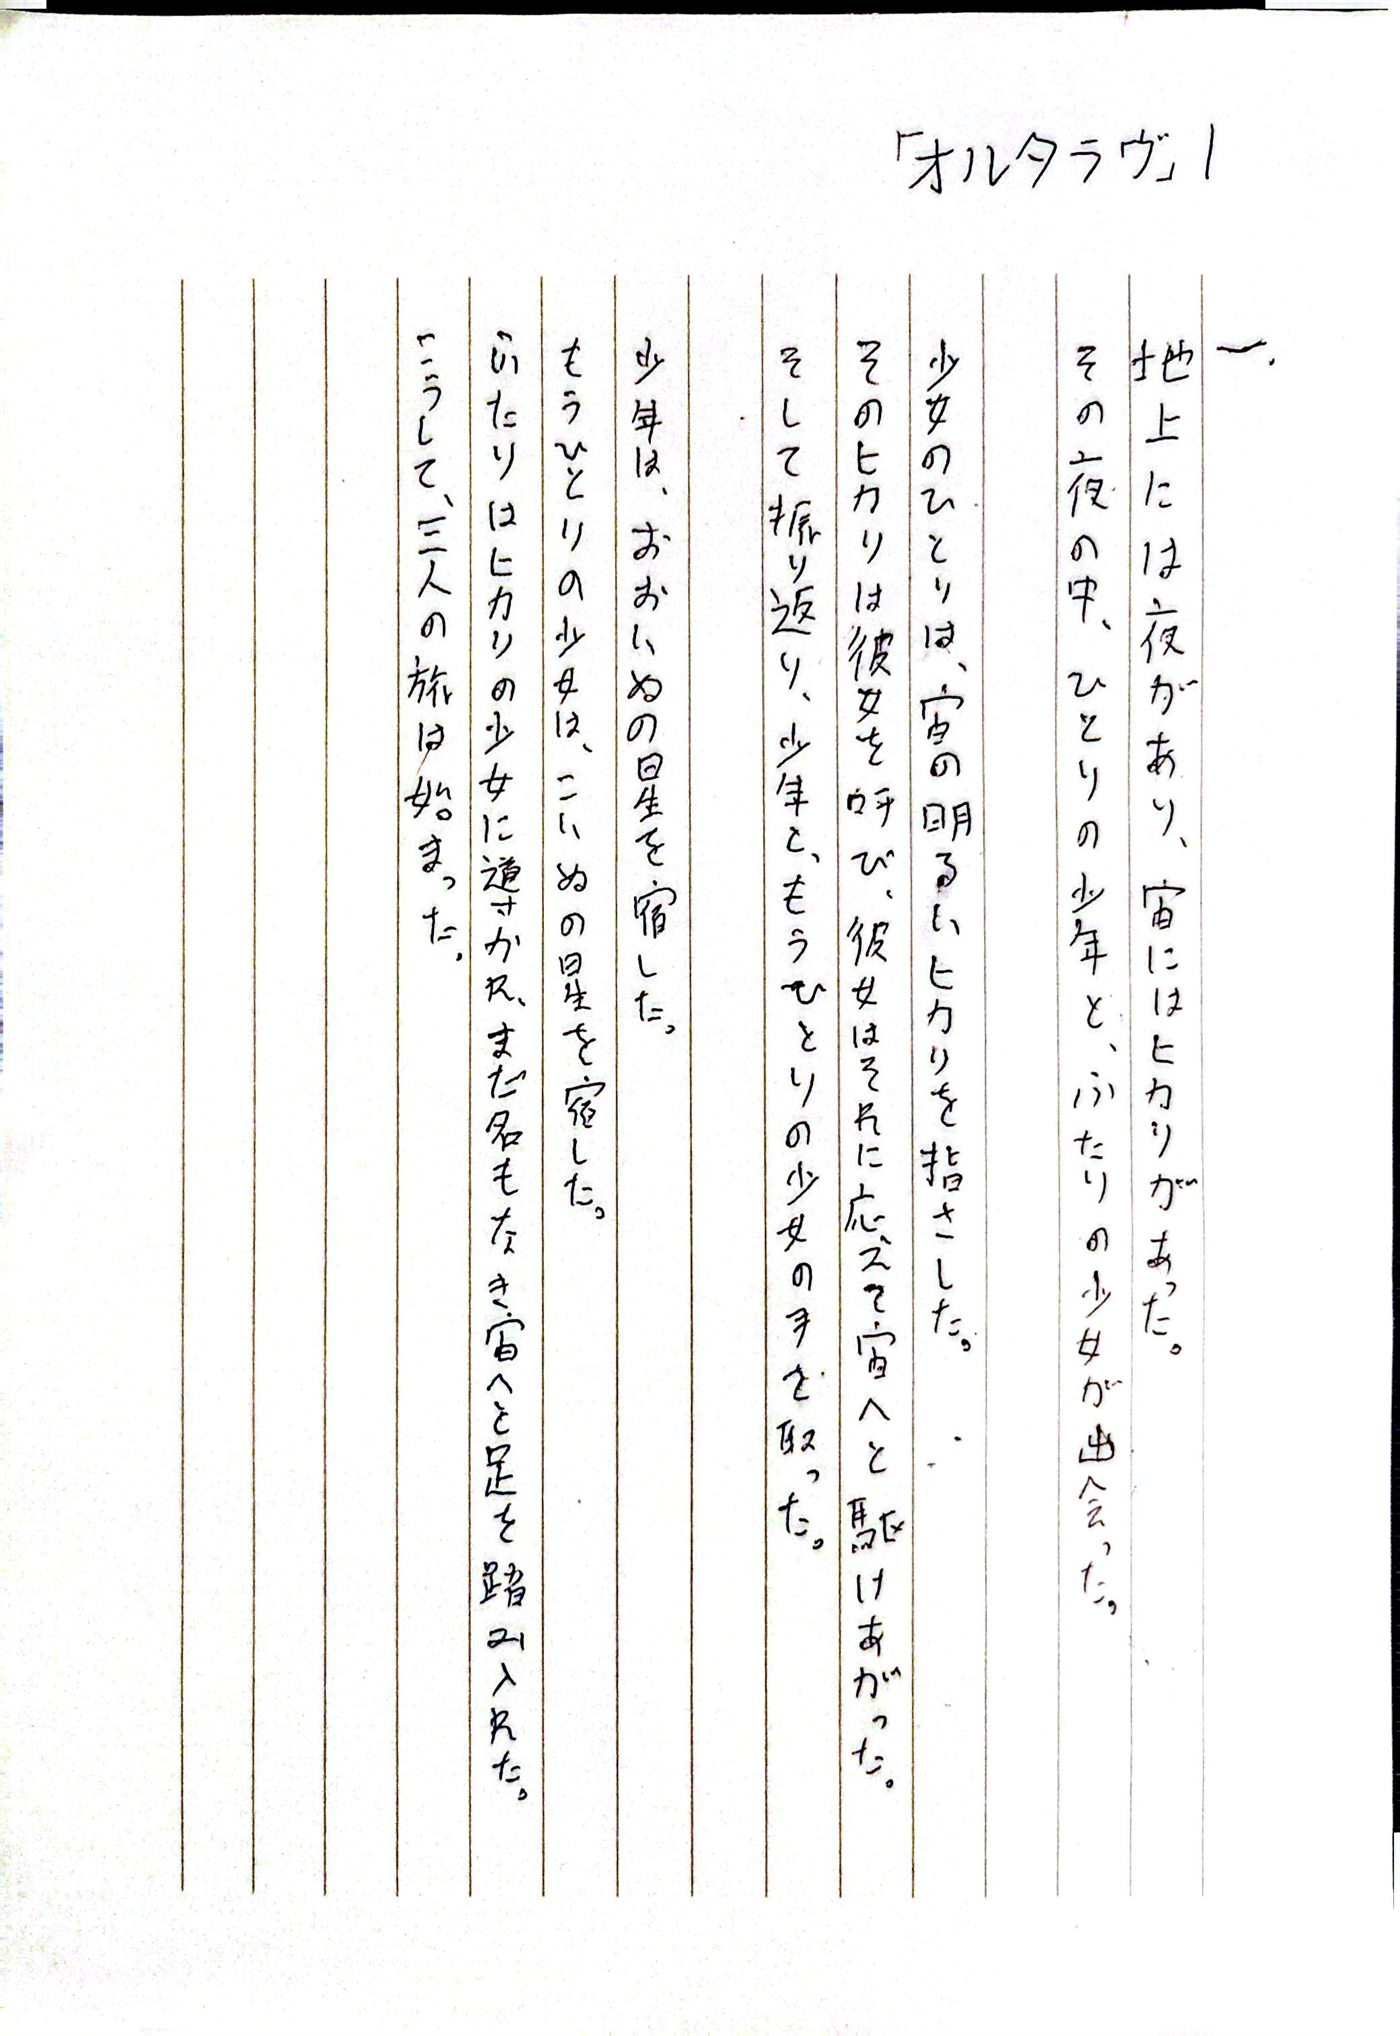 「オルタラヴ」1
一、
地上には夜があり、宙にはヒカリがあった。
その夜の中、ひとりの少年と、ふたりの少女が出会った。
少女のひとりは、宙の明るいヒカリを指さした。
そのヒカリは彼女を呼び、彼女はそれに応えて宙へと駆けあがった。
そして振り返り、少年と、もうひとりの少女の手を取った。
少年は、おおいぬの星を宿した。
もうひとりの少女は、こいぬの星を宿した。
ふたりはヒカリの少女に導かれ、まだ名もなき宙へと足を踏み入れた。
こうして、三人の旅は始まった。